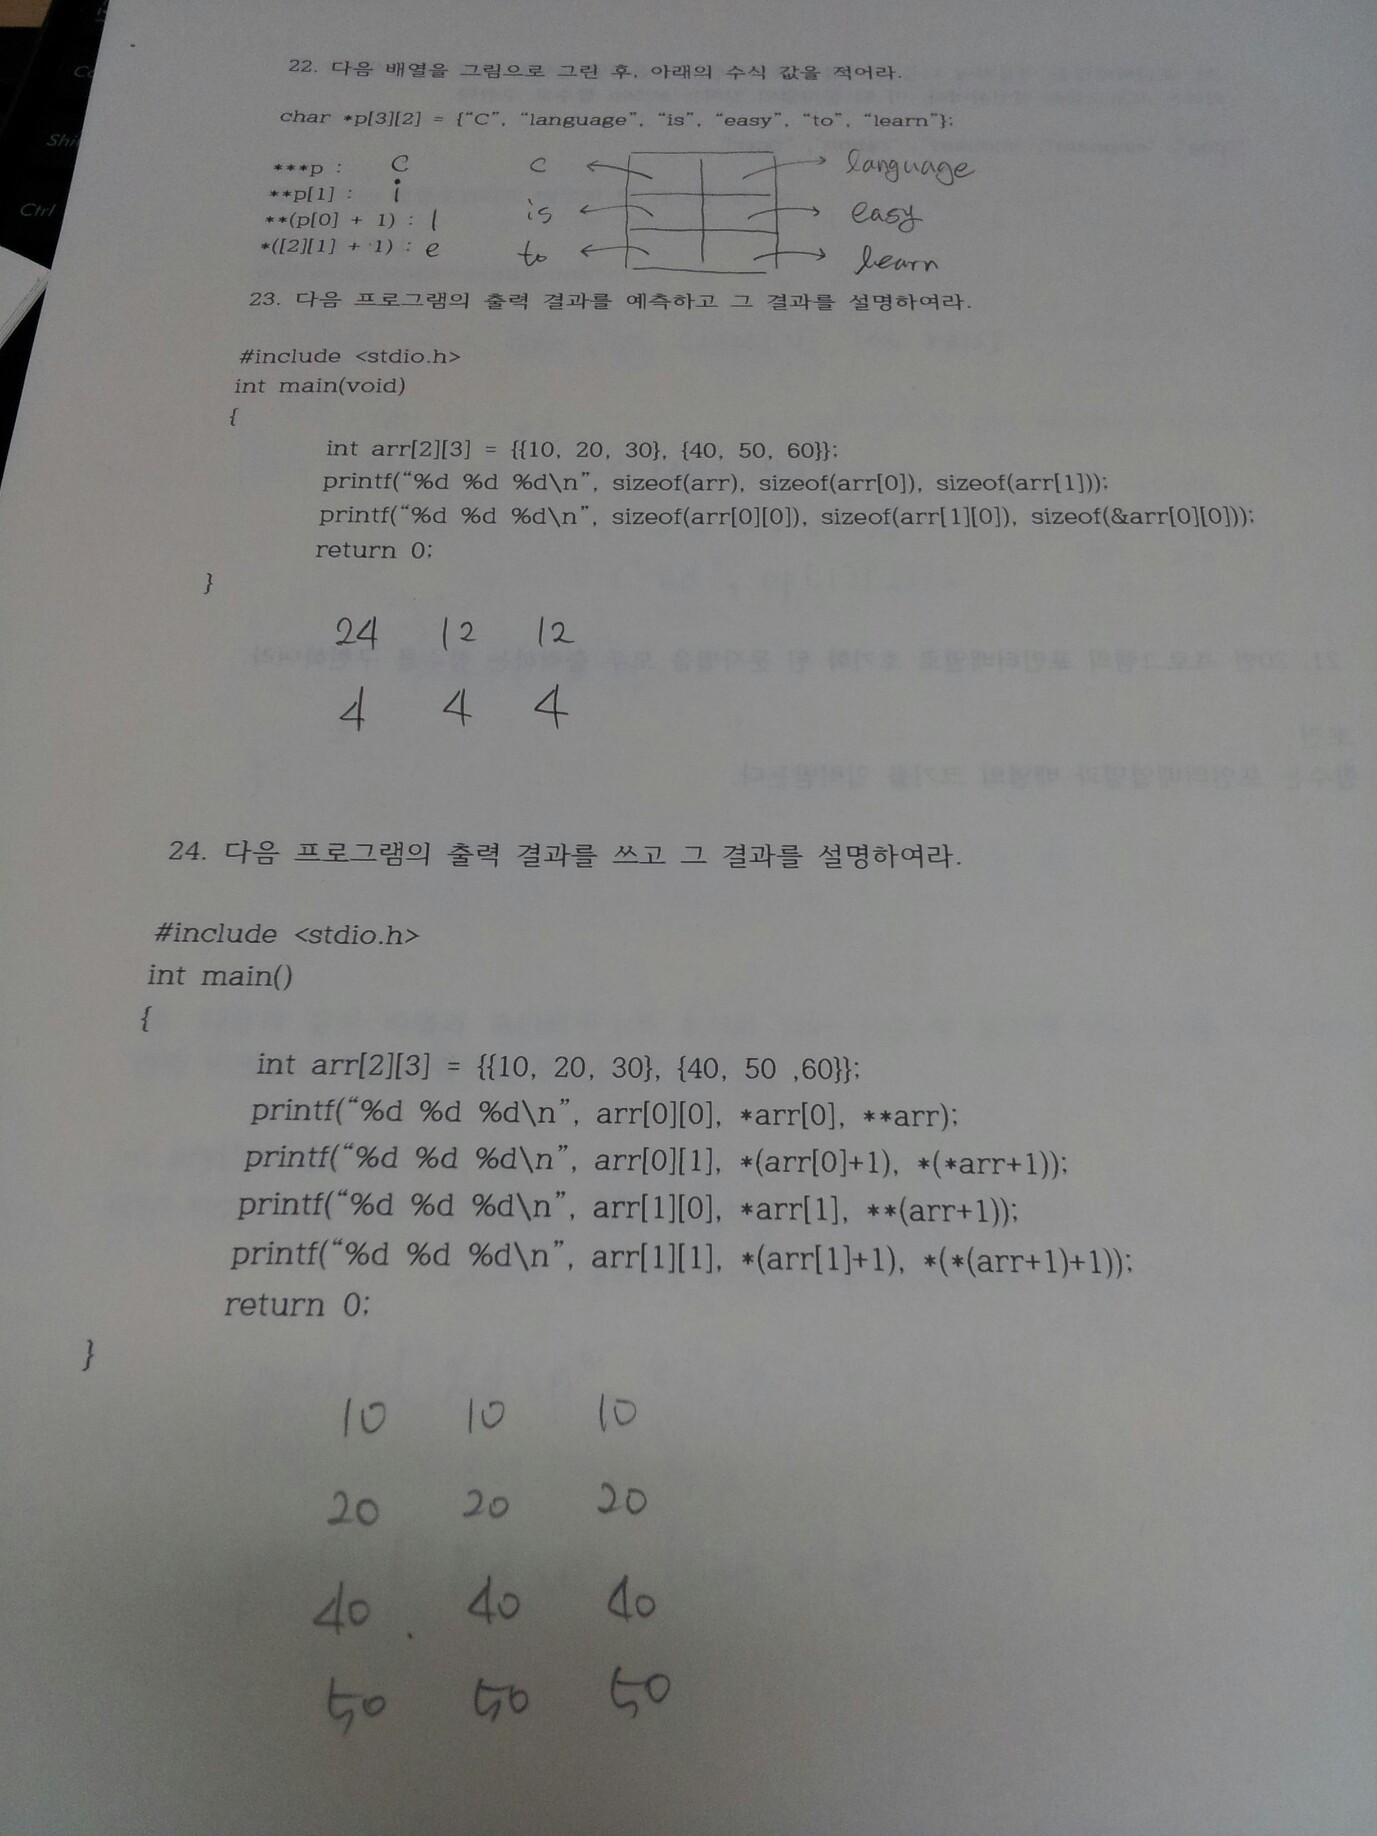 22. 다음 배열을 그림으로 그린 후, 아래의 수식 값을 적어라.
char *p[3][2] = {“C”, “language”, “is”, “easy”, “to”, “learn”};
***p : C
c language
**p[1] : i
is easy
**(p[0] + 1) : l
*([2][1] + 1) : e
to learn
23. 다음 프로그램의 출력 결과를 예측하고 그 결과를 설명하여라.
#include <stdio.h>
int main(void)
{
int arr[2][3] = {{10, 20, 30}, {40, 50, 60}};
printf(“%d %d %d\n”, sizeof(arr), sizeof(arr[0]), sizeof(arr[1]));
printf(“%d %d %d\n”, sizeof(arr[0][0]), sizeof(arr[1][0]), sizeof(&arr[0][0]));
return 0;
}
24 12 12
4 4 4
24. 다음 프로그램의 출력 결과를 쓰고 그 결과를 설명하여라.
#include <stdio.h>
int main()
{
int arr[2][3] = {{10, 20, 30}, {40, 50 ,60}};
printf(“%d %d %d\n”, arr[0][0], *arr[0], **arr);
printf(“%d %d %d\n”, arr[0][1], *(arr[0]+1), *(*arr+1));
printf(“%d %d %d\n”, arr[1][0], *arr[1], **(arr+1));
printf(“%d %d %d\n”, arr[1][1], *(arr[1]+1), *(*(arr+1)+1));
return 0;
}
10 10 10
20 20 20
40 40 40
50 50 50
Shi
Ctrl